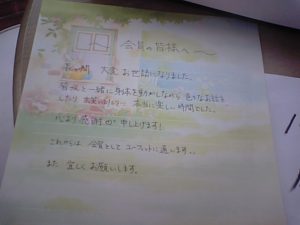 会員の皆様へ〜
長い間 大変お世話になりました。
皆様と一緒に身体を動かしながら 色々なお話を
したり 本当に楽しい時間でした。
心より感謝 申し上げます!
これからは 会員として に通います。
また 宜しくお願いします。